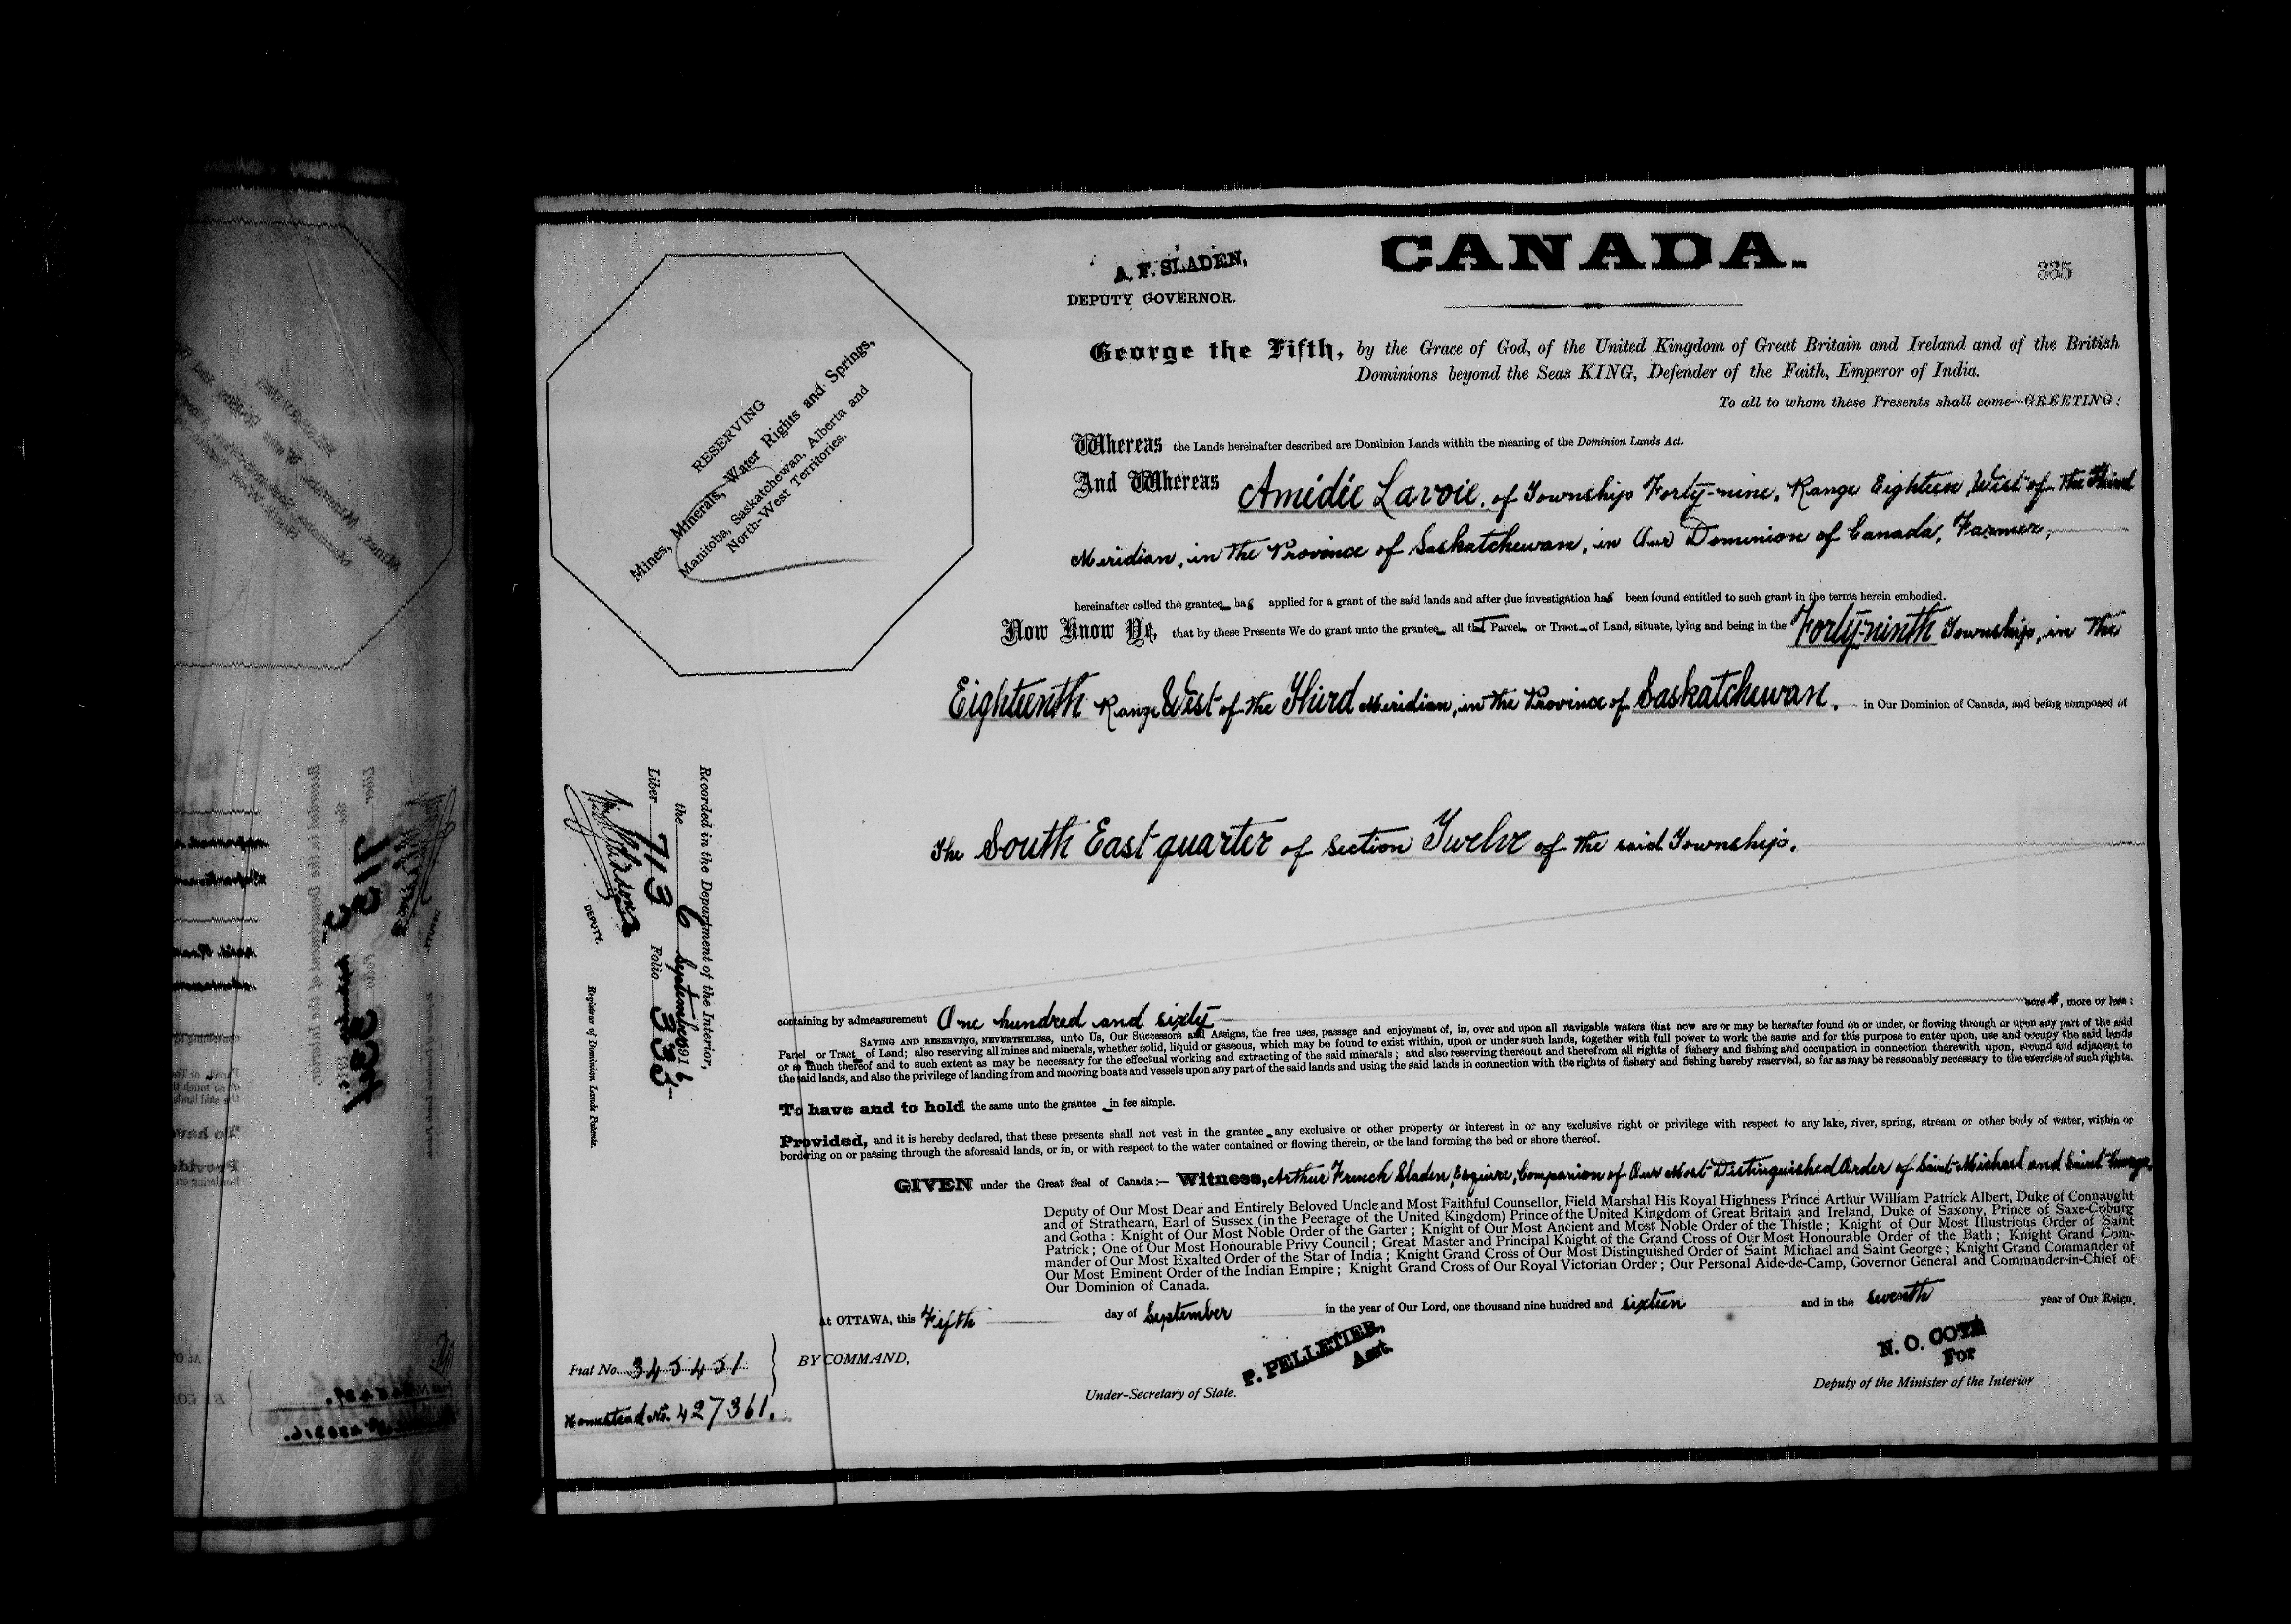 CANADA.
335
A. F. SLADEN,
DEPUTY GOVERNOR.
RESERVING
Mines, Minerals, Water Rights and Springs,
Manitoba, Saskatchewan, Alberta and
North-West Territories.
George the Fifth, by the Grace of God, of the United Kingdom of Great Britain and Ireland and of the British
Dominions beyond the Seas KING, Defender of the Faith, Emperor of India.
To all to whom these Presents shall come—GREETING:
Whereas the Lands hereinafter described are Dominion Lands within the meaning of the Dominion Lands Act.
And Whereas Amédée Lavoie, of Township Forty-nine, Range Eighteen, West of the Third
Meridian, in the Province of Saskatchewan, in Our Dominion of Canada, Farmer,
hereinafter called the grantee has applied for a grant of the said lands and after due investigation has been found entitled to such grant in the terms herein embodied.
Now Know Ye, that by these Presents We do grant unto the grantee all that Parcel or Tract of Land, situate, lying and being in the Forty-ninth Township, in the
Eighteenth Range West of the Third Meridian, in the Province of Saskatchewan, in Our Dominion of Canada, and being composed of
The South East quarter of Section Twelve of the said Township.
Recorded in the Department of the Interior,
the 6 September 1916
Liber 713 Folio 335
DEPUTY. Registrar of Dominion Lands Patents.
containing by admeasurement One hundred and sixty acres, more or less;
SAVING AND RESERVING, NEVERTHELESS, unto Us, Our Successors and Assigns, the free uses, passage and enjoyment of, in, over and upon all navigable waters that now are or may be hereafter found on or under, or flowing through or upon any part of the said
Parcel or Tract of Land; also reserving all mines and minerals, whether solid, liquid or gaseous, which may be found to exist within, upon or under such lands, together with full power to work the same and for this purpose to enter upon, use and occupy the said lands
or so much thereof and to such extent as may be necessary for the effectual working and extracting of the said minerals; and also reserving thereout and therefrom all rights of fishery and fishing and occupation in connection therewith upon, around and adjacent to
the said lands, and also the privilege of landing from and mooring boats and vessels upon any part of the said lands and using the said lands in connection with the rights of fishery and fishing hereby reserved, so far as may be reasonably necessary to the exercise of such rights.
To have and to hold the same unto the grantee in fee simple.
Provided, and it is hereby declared, that these presents shall not vest in the grantee any exclusive or other property or interest in or any exclusive right or privilege with respect to any lake, river, spring, stream or other body of water, within or
bordering on or passing through the aforesaid lands, or in, or with respect to the water contained or flowing therein, or the land forming the bed or shore thereof.
GIVEN under the Great Seal of Canada:— Witness, Arthur French Sladen, Esquire, Companion of Our Most Distinguished Order of Saint Michael and Saint George,
Deputy of Our Most Dear and Entirely Beloved Uncle and Most Faithful Counsellor, Field Marshal His Royal Highness Prince Arthur William Patrick Albert, Duke of Connaught
and of Strathearn, Earl of Sussex (in the Peerage of the United Kingdom) Prince of the United Kingdom of Great Britain and Ireland, Duke of Saxony, Prince of Saxe-Coburg
and Gotha: Knight of Our Most Noble Order of the Garter; Knight of Our Most Ancient and Most Noble Order of the Thistle; Knight of Our Most Illustrious Order of Saint
Patrick; One of Our Most Honourable Privy Council; Great Master and Principal Knight of the Grand Cross of Our Most Honourable Order of the Bath; Knight Grand Com-
mander of Our Most Exalted Order of the Star of India; Knight Grand Cross of Our Most Distinguished Order of Saint Michael and Saint George; Knight Grand Commander of
Our Most Eminent Order of the Indian Empire; Knight Grand Cross of Our Royal Victorian Order; Our Personal Aide-de-Camp, Governor General and Commander-in-Chief of
Our Dominion of Canada.
At OTTAWA, this Fifth day of September in the year of Our Lord, one thousand nine hundred and sixteen and in the seventh year of Our Reign.
BY COMMAND,
P. PELLETIER,
Asst.
Under-Secretary of State.
N. O. COTÉ
For
Deputy of the Minister of the Interior
Fiat No. 345451
Homestead No. 427361.